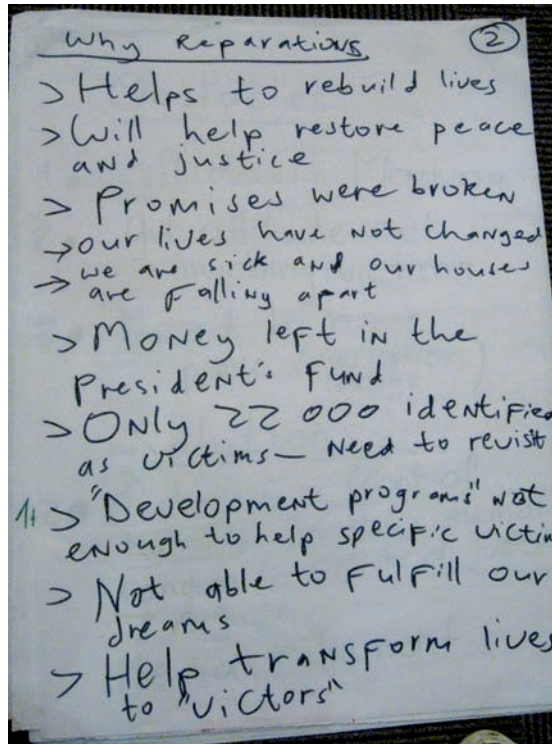 Why Reparations ②
> Helps to rebuild lives
> Will help restore peace
and justice
> Promises were broken
→ our lives have not changed
→ we are sick and our houses
are falling apart
> Money left in the
President's Fund
> Only 22 000 identified
as victims — Need to revisit
> "Development programs" not
enough to help specific victim
> Not able to fulfill our
dreams
> Help transform lives
to "victors"